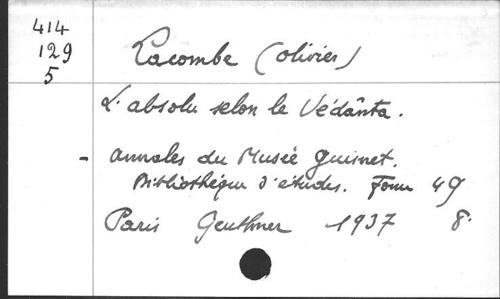 414
129
5
Lacombe (Olivier)
L'absolu selon le Védânta.
- Annales du Musée Guimet.
Bibliothèque d'études. Tome 49
Paris Geuthner 1937 8°